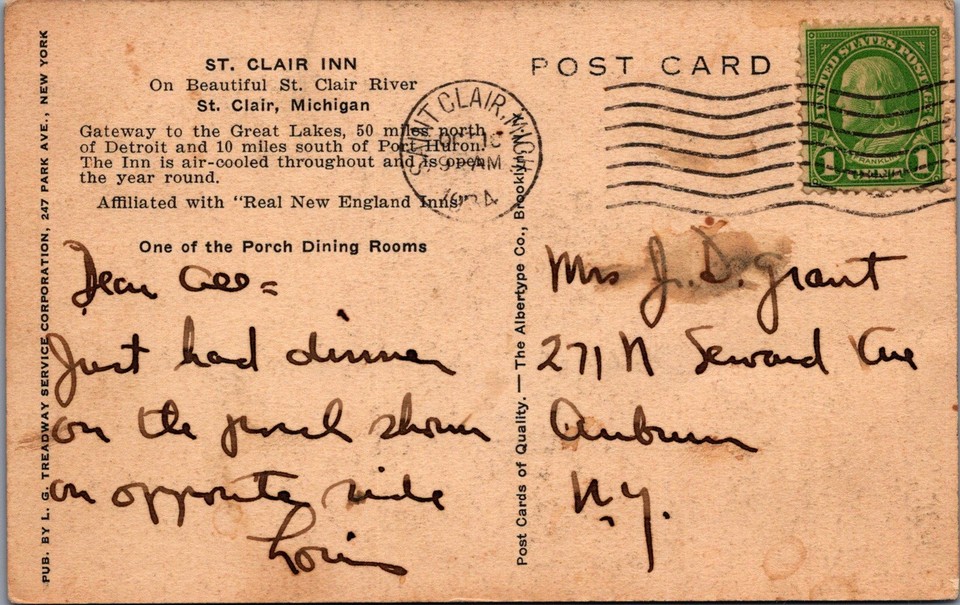 ST. CLAIR INN
On Beautiful St. Clair River
St. Clair, Michigan
Gateway to the Great Lakes, 50 miles north
of Detroit and 10 miles south of Port Huron.
The Inn is air-cooled throughout and is open
the year round.
Affiliated with "Real New England Inns"
One of the Porch Dining Rooms
Dear All =
Just had dinner
on the porch shown
on opposite side
Lois
PUB. BY L. G. TREADWAY SERVICE CORPORATION, 247 PARK AVE., NEW YORK
Post Cards of Quality. — The Albertype Co., Brooklyn
POST CARD
SAINT CLAIR, MICH.
9 AM
1934
UNITED STATES POSTAGE
1 FRANKLIN 1
Mrs J. D. Grant
271 N Seward Ave
Auburn
N.Y.